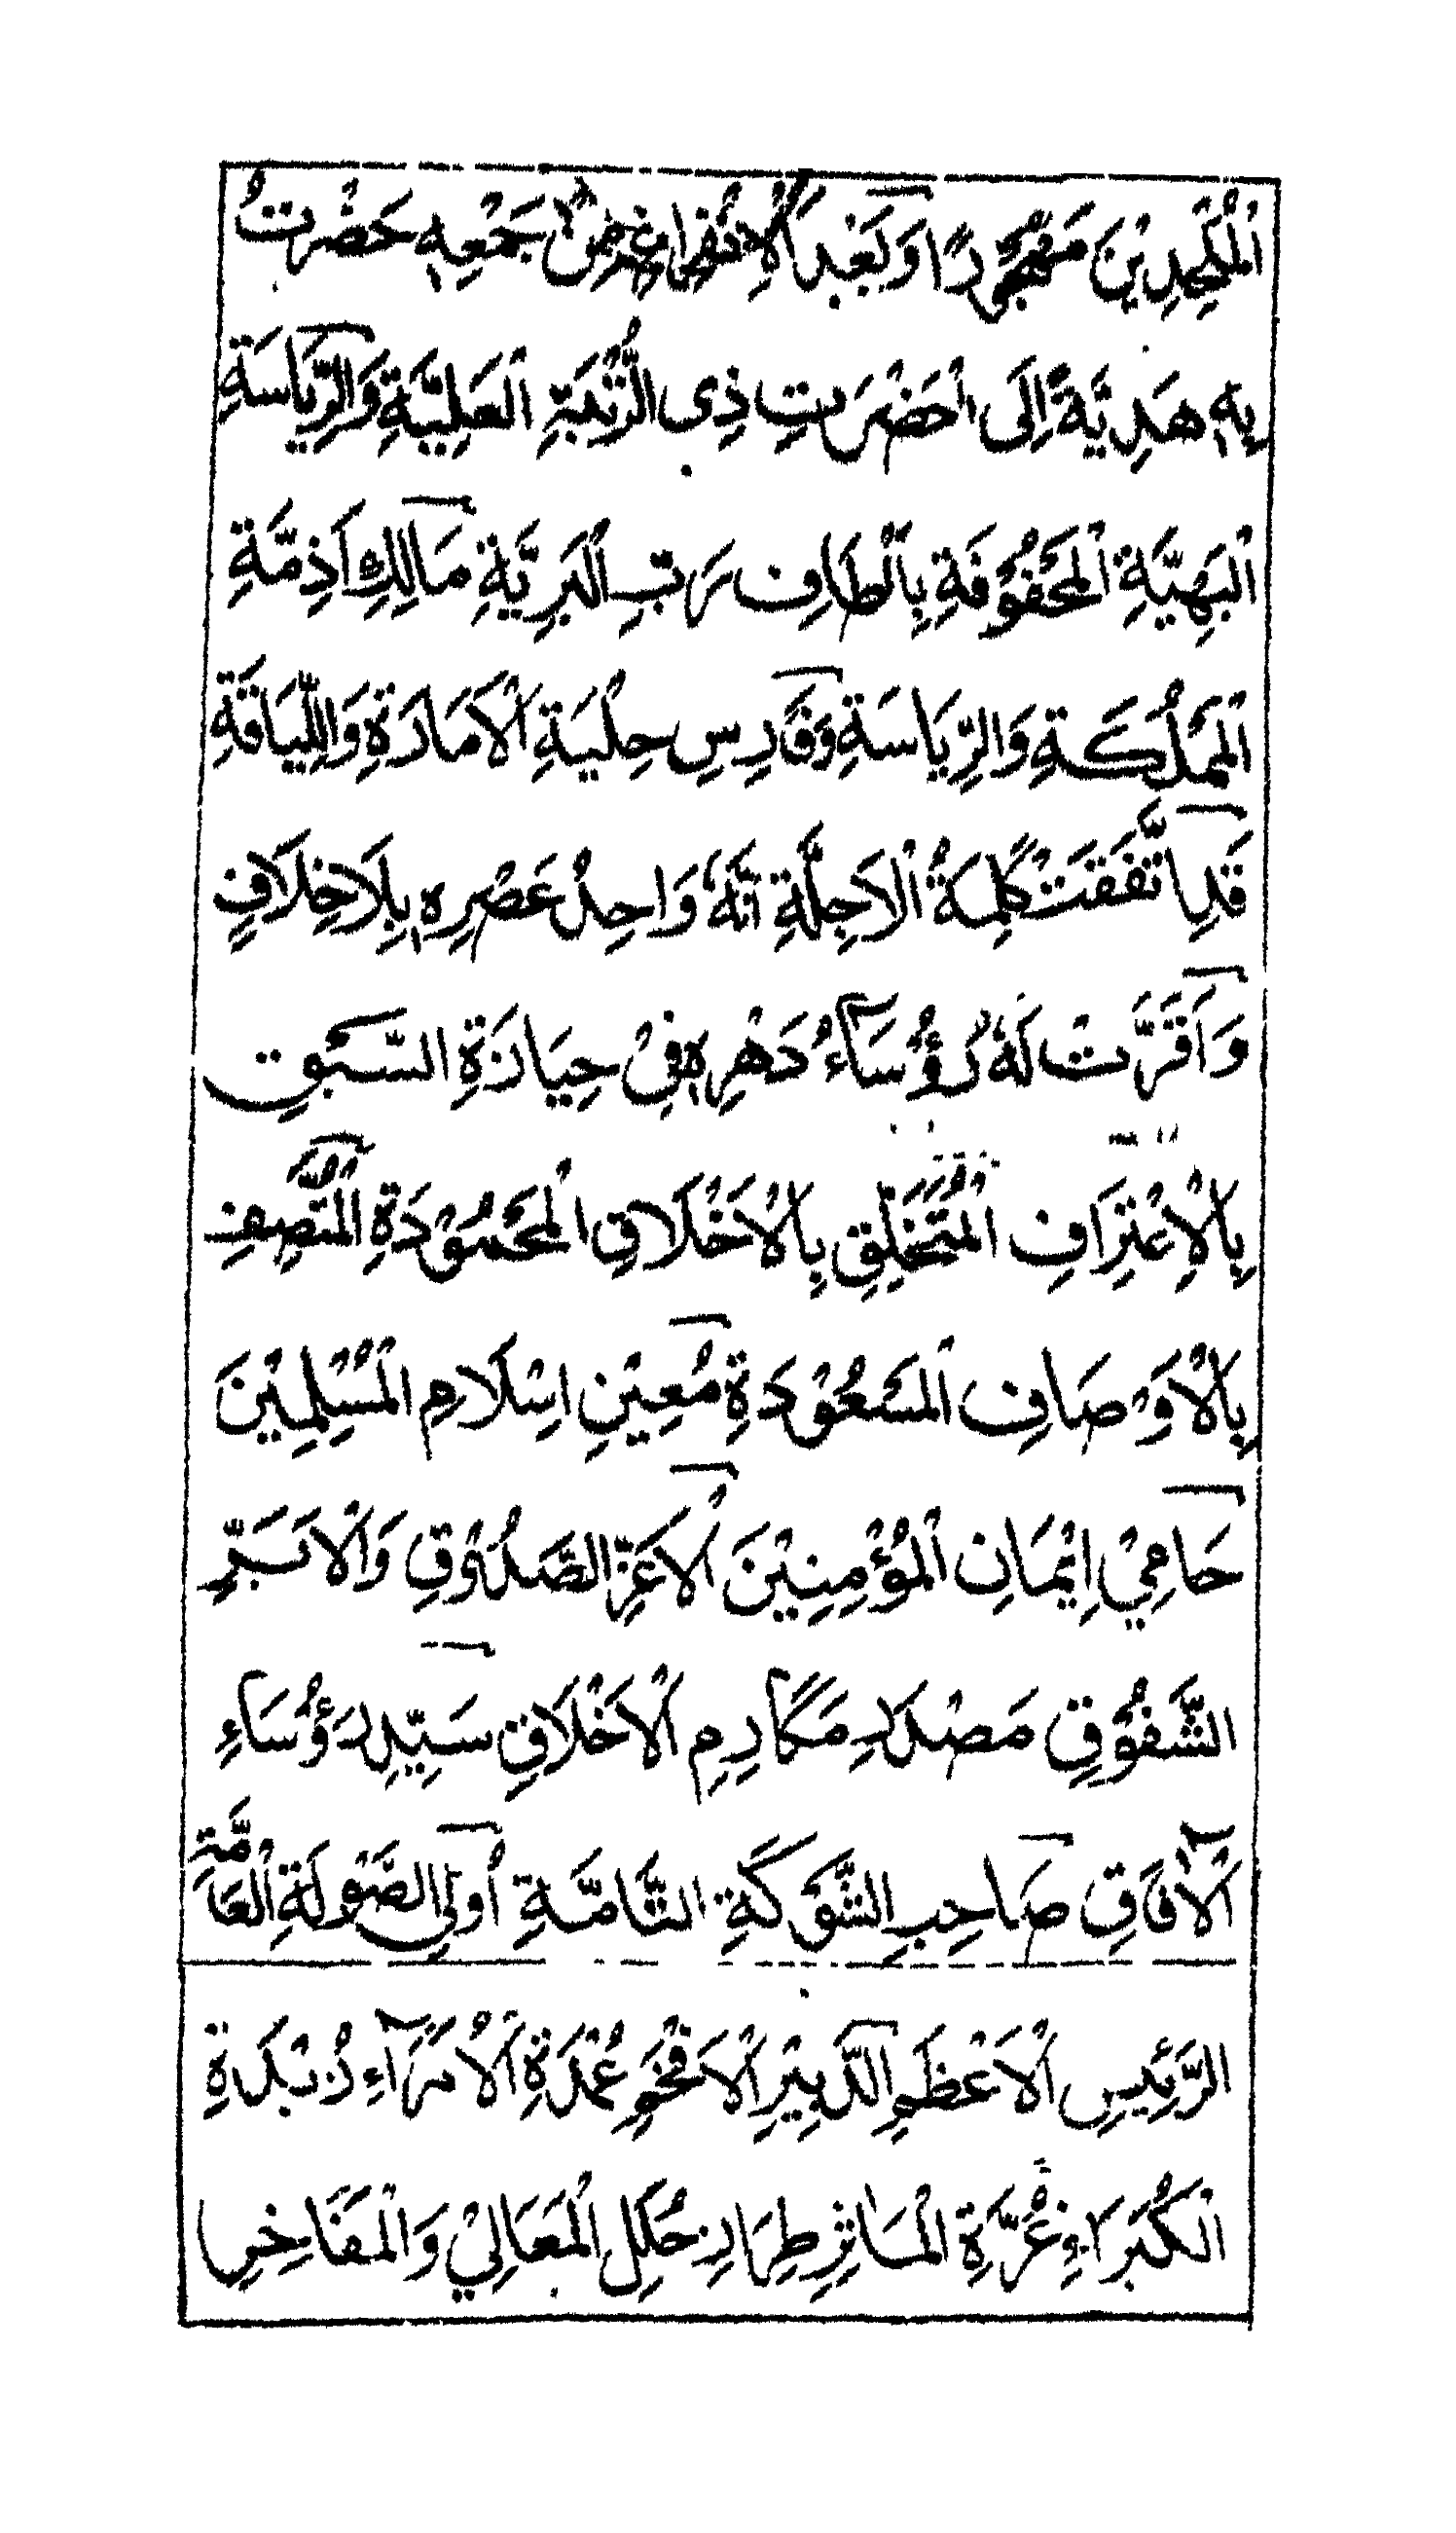 اَلْمُلْحِدِيْنَ مَهْجُوْرًا وَبَعْدُ الْاِنْفِرَاغِ مِنْ جَمْعِهٖ حَضَرْتُ
بِهٖ هَدِيَّةً اِلَى احَضْرَتِ ذِى الرُّتْبَةِ الْعَلِيَّةِ وَالرِّيَاسَةِ
الْبَهِيَّةِ الْمَحْفُوْفَةِ بِاَلْطَافِ رَبِّ الْبَرِيَّةِ مَالِكِ اَزِمَّةِ
الْمَمْلُكَةِ وَالرِّيَاسَةِ وَفَارِسِ حِلْيَةِ الْاَمَارَةِ وَاللِّيَاقَةِ
قَدِ اتَّفَقَتْ كَلِمَةُ الْاَجِلَّةِ اَنَّهٗ وَاحِدُ عَصْرِهٖ بِلَاخِلَافٍ
وَاَقَرَّتْ لَهٗ رُؤُسَآءُ دَهْرِهٖ فِيْ حِيَازَةِ السَّبْقِ
بِالْاِعْتِرَافِ الْمُتَخَلِّقِ بِالْاَخْلَاقِ الْمَحْمُوْدَةِ الْمُتَّصِفِ
بِالْاَوْصَافِ الْمَسْعُوْدَةِ مُعِيْنِ اِسْلَامِ الْمُسْلِمِيْنَ
حَامِيْ اِيْمَانِ الْمُؤْمِنِيْنَ الْاَعَزِّ الصَّدُوْقِ وَالْاَبَرِّ
الشَّفُوْقِ مَصْدَرِ مَكَارِمِ الْاَخْلَاقِ سَيِّدِ رُؤَسَاءِ
الْاٰفَاقِ صَاحِبِ الشَّوْكَةِ التَّامَّةِ اُولِى الصَّوْلَةِ الْعَامَّةِ
الرَّئِيْسِ الْاَعْظَمِ الدَّبِيْرِ الْاَفْخَمِ عُمْدَةِ الْاُمَرَآءِ زُبْدَةِ
الْكُبَرَاءِ غُرَّةِ الْمَاٰثِرِ طِرَازِ حُلَلِ الْمَعَالِيْ وَالْمَفَاخِرِ